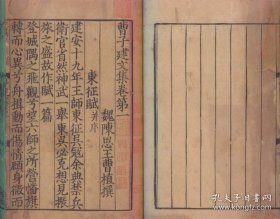 曹子建文集卷第一
魏陳思王曹植撰
東征賦 并序
建安十九年王師東征吳寇余典禁兵
衛官省然神武一舉東夷必克想見振
旅之盛故作賦一篇
登城隅之飛觀兮望六師之所營幡旗
轉而心異兮舟楫動而傷情顧身微而
孔夫子旧书网